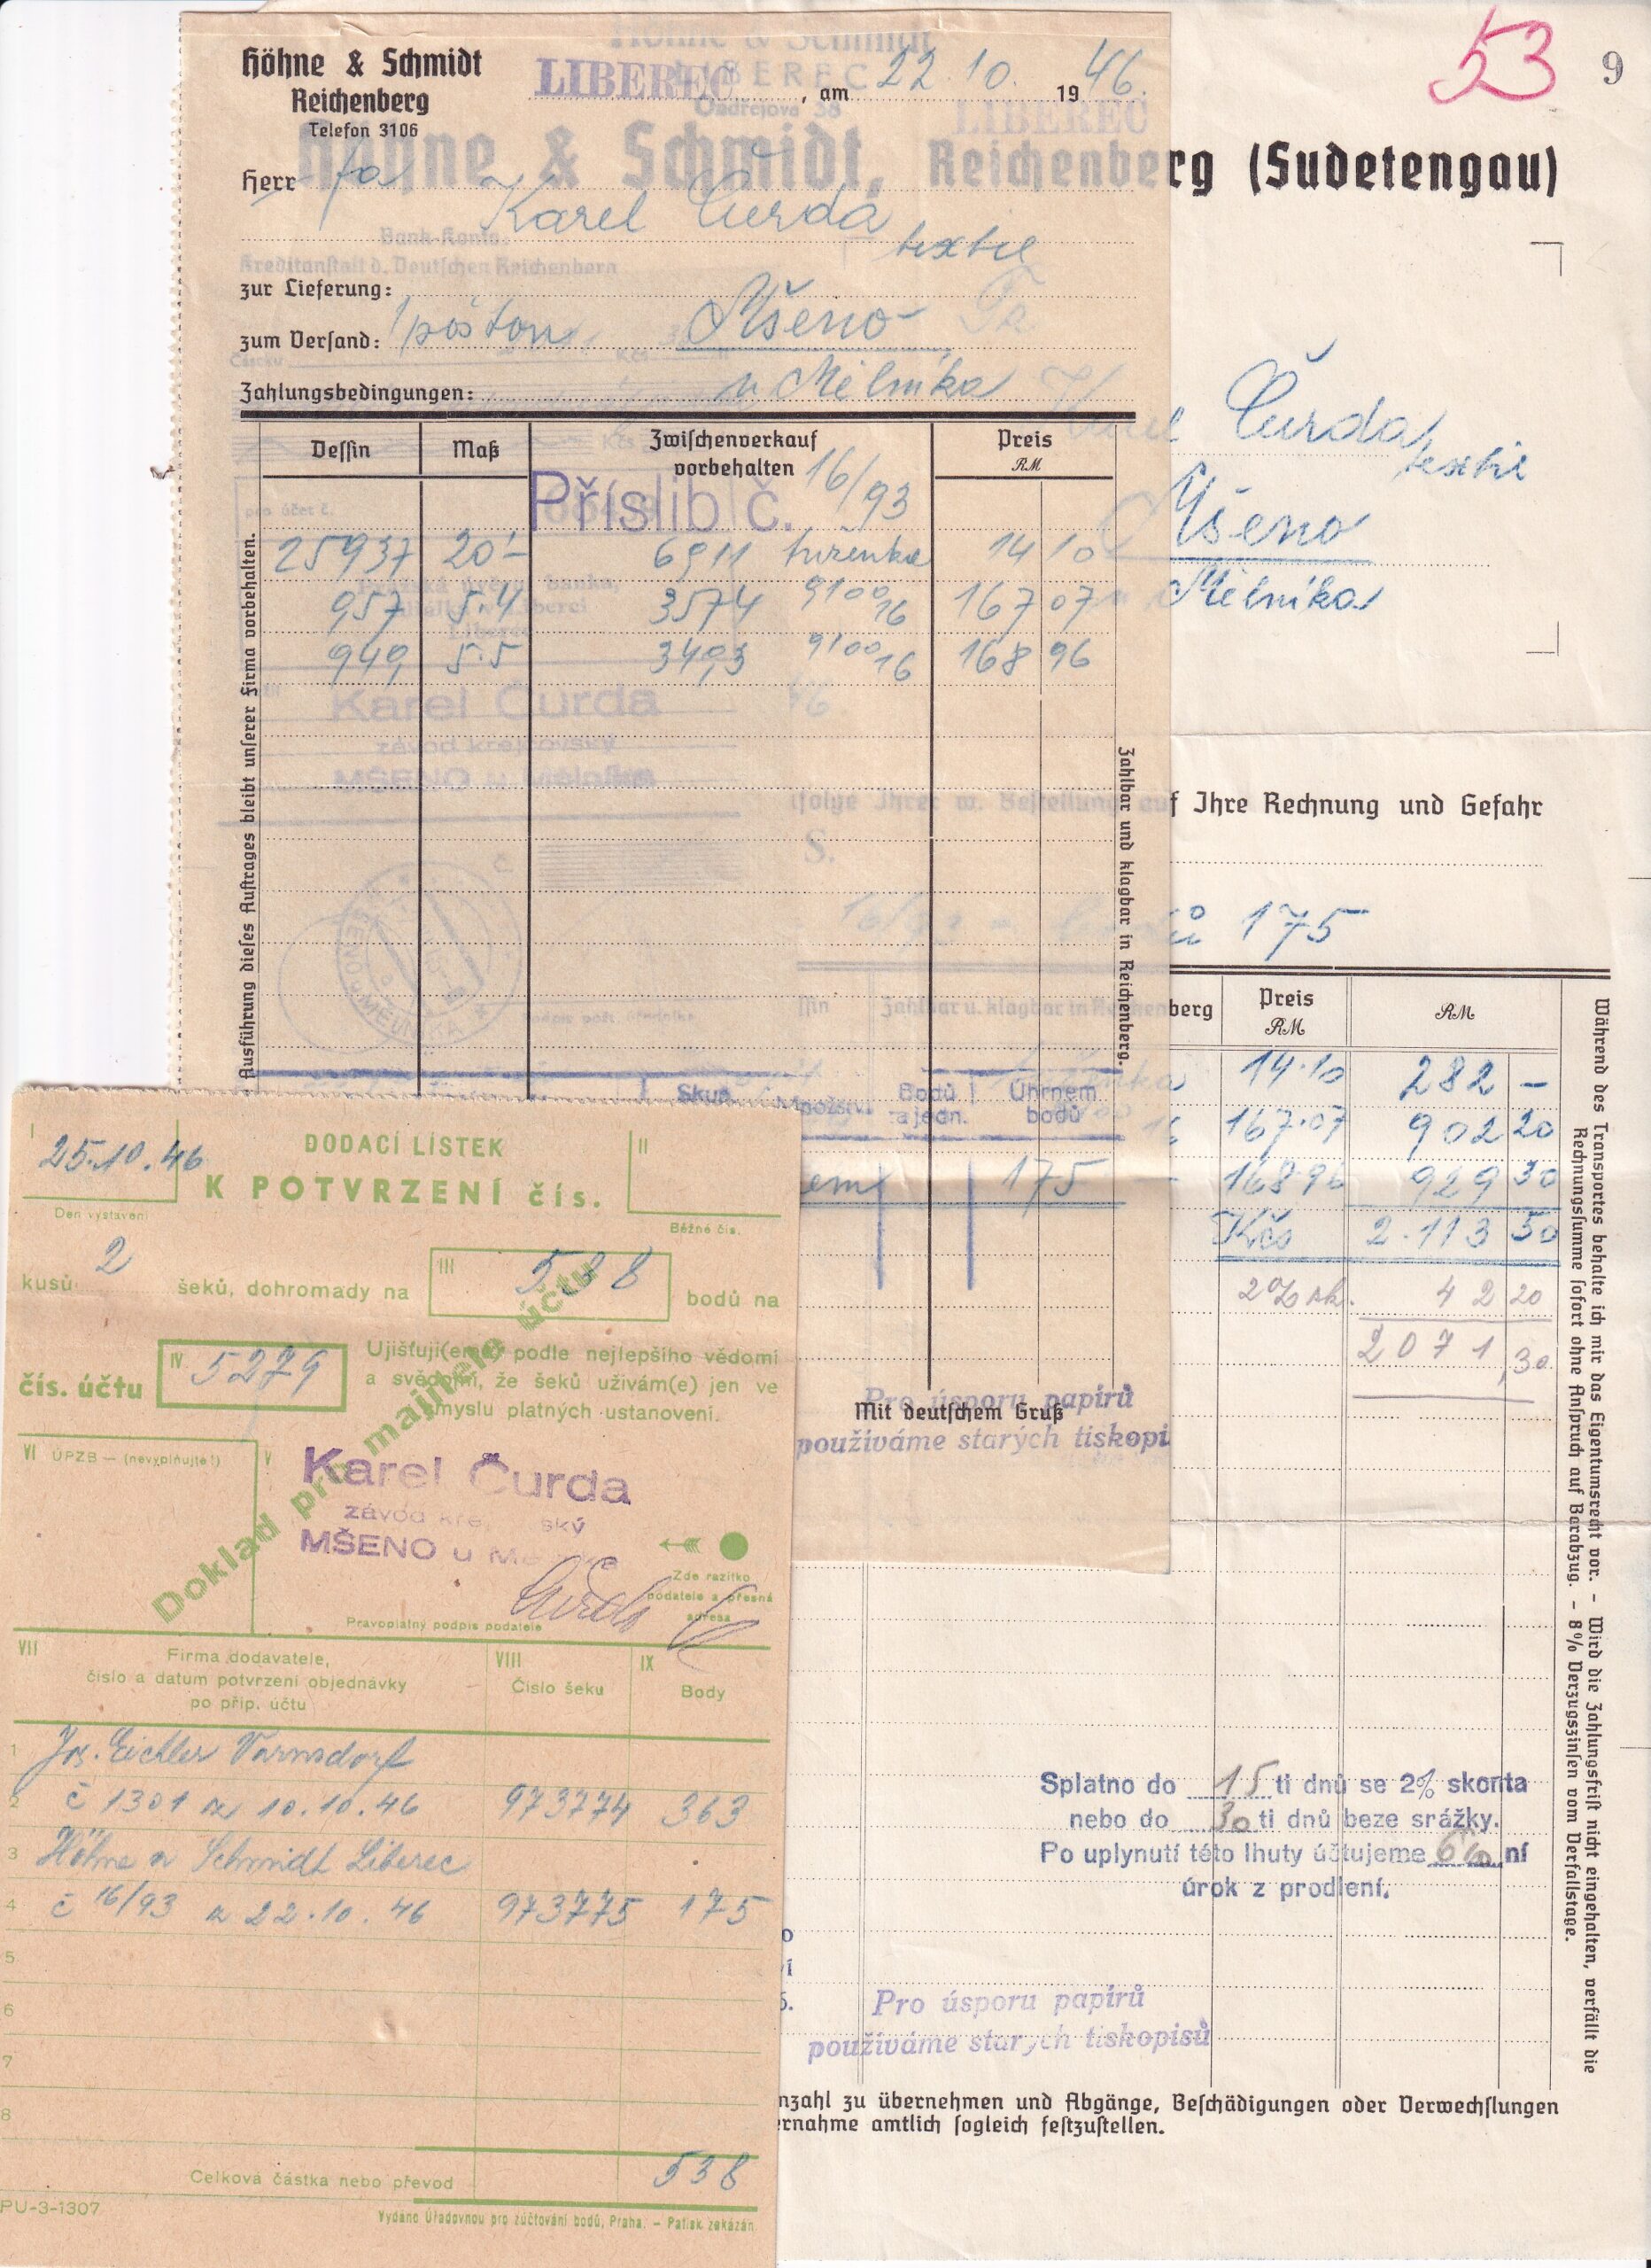 53
9
Höhne & Schmidt
Reichenberg
Telefon 3106
LIBEREC, am 22.10. 1946.
Höhne & Schmidt, Reichenberg (Sudetengau)
Herr fa
Karel Čurda
textil
Bank-Konto:
Kreditanstalt d. Deutschen Reichenberg
zur Lieferung:
zum Versand: poštou Mšeno
Zahlungsbedingungen: u Mělníka
Dessin Maß Zwischenverkauf vorbehalten Preis RM
Příslib č. 16/93
25937 20'- 6911 tuženka 14 10
957 5.4 3574 9100/16 167 07
949 5.5 3493 9100/16 168 96
Karel Čurda
závod krejčovský
MŠENO u Mělníka
Ausführung dieses Auftrages bleibt unserer Firma vorbehalten.
Zahlbar und klagbar in Reichenberg.
Skup. Množství Bodů a jedn. Úhrnem bodů
em 175
Mit deutschem Gruß
Pro úsporu papírů
používáme starých tiskopi
Čurda
textil
Mšeno
Mělníka
folge Ihrer w. Bestellung auf Ihre Rechnung und Gefahr
ů 175
berg Preis RM RM
14.10 282 -
167.07 902 20
168 96 929 30
Kčs 2.113 50
2% sk. 42 20
2071,30
Während des Transportes behalte ich mir das Eigentumsrecht vor. – Wird die Zahlungsfrist nicht eingehalten, verfällt die
Rechnungssumme sofort ohne Anspruch auf Barabzug. – 8% Verzugszinsen vom Verfallstage.
Splatno do 15 ti dnů se 2% skonta
nebo do 30 ti dnů beze srážky.
Po uplynutí této lhuty účtujeme 6% ní
úrok z prodlení.
Pro úsporu papírů
používáme starých tiskopisů
nzahl zu übernehmen und Abgänge, Beschädigungen oder Verwechslungen
ernahme amtlich sogleich festzustellen.
I 25.10.46
Den vystavení
DODACÍ LÍSTEK
K POTVRZENÍ čís.
II
Běžné čís.
kusů 2 šeků, dohromady na III 538 bodů na
čís. účtu IV 5279
Ujišťuji(eme) podle nejlepšího vědomí
a svědomí, že šeků užívám(e) jen ve
smyslu platných ustanovení.
Doklad pro majitele účtu
VI ÚPZB — (nevyplňujte!)
V
Karel Čurda
závod kre ský
MŠENO u Mě
Čurda
Zde razítko
podatele a přesná
adresa
Pravoplatný podpis podatele
VII Firma dodavatele,
číslo a datum potvrzení objednávky
po příp. účtu
VIII Číslo šeku
IX Body
1 Jos. Eichler Varnsdorf
2 č 1301 z 10.10.46 973774 363
3 Höhne a Schmidt Liberec
4 č 16/93 z 22.10.46 973775 175
5
6
7
8
Celková částka nebo převod 538
PU-3-1307
Vydáno Úřadovnou pro zúčtování bodů, Praha. – Patisk zakázán